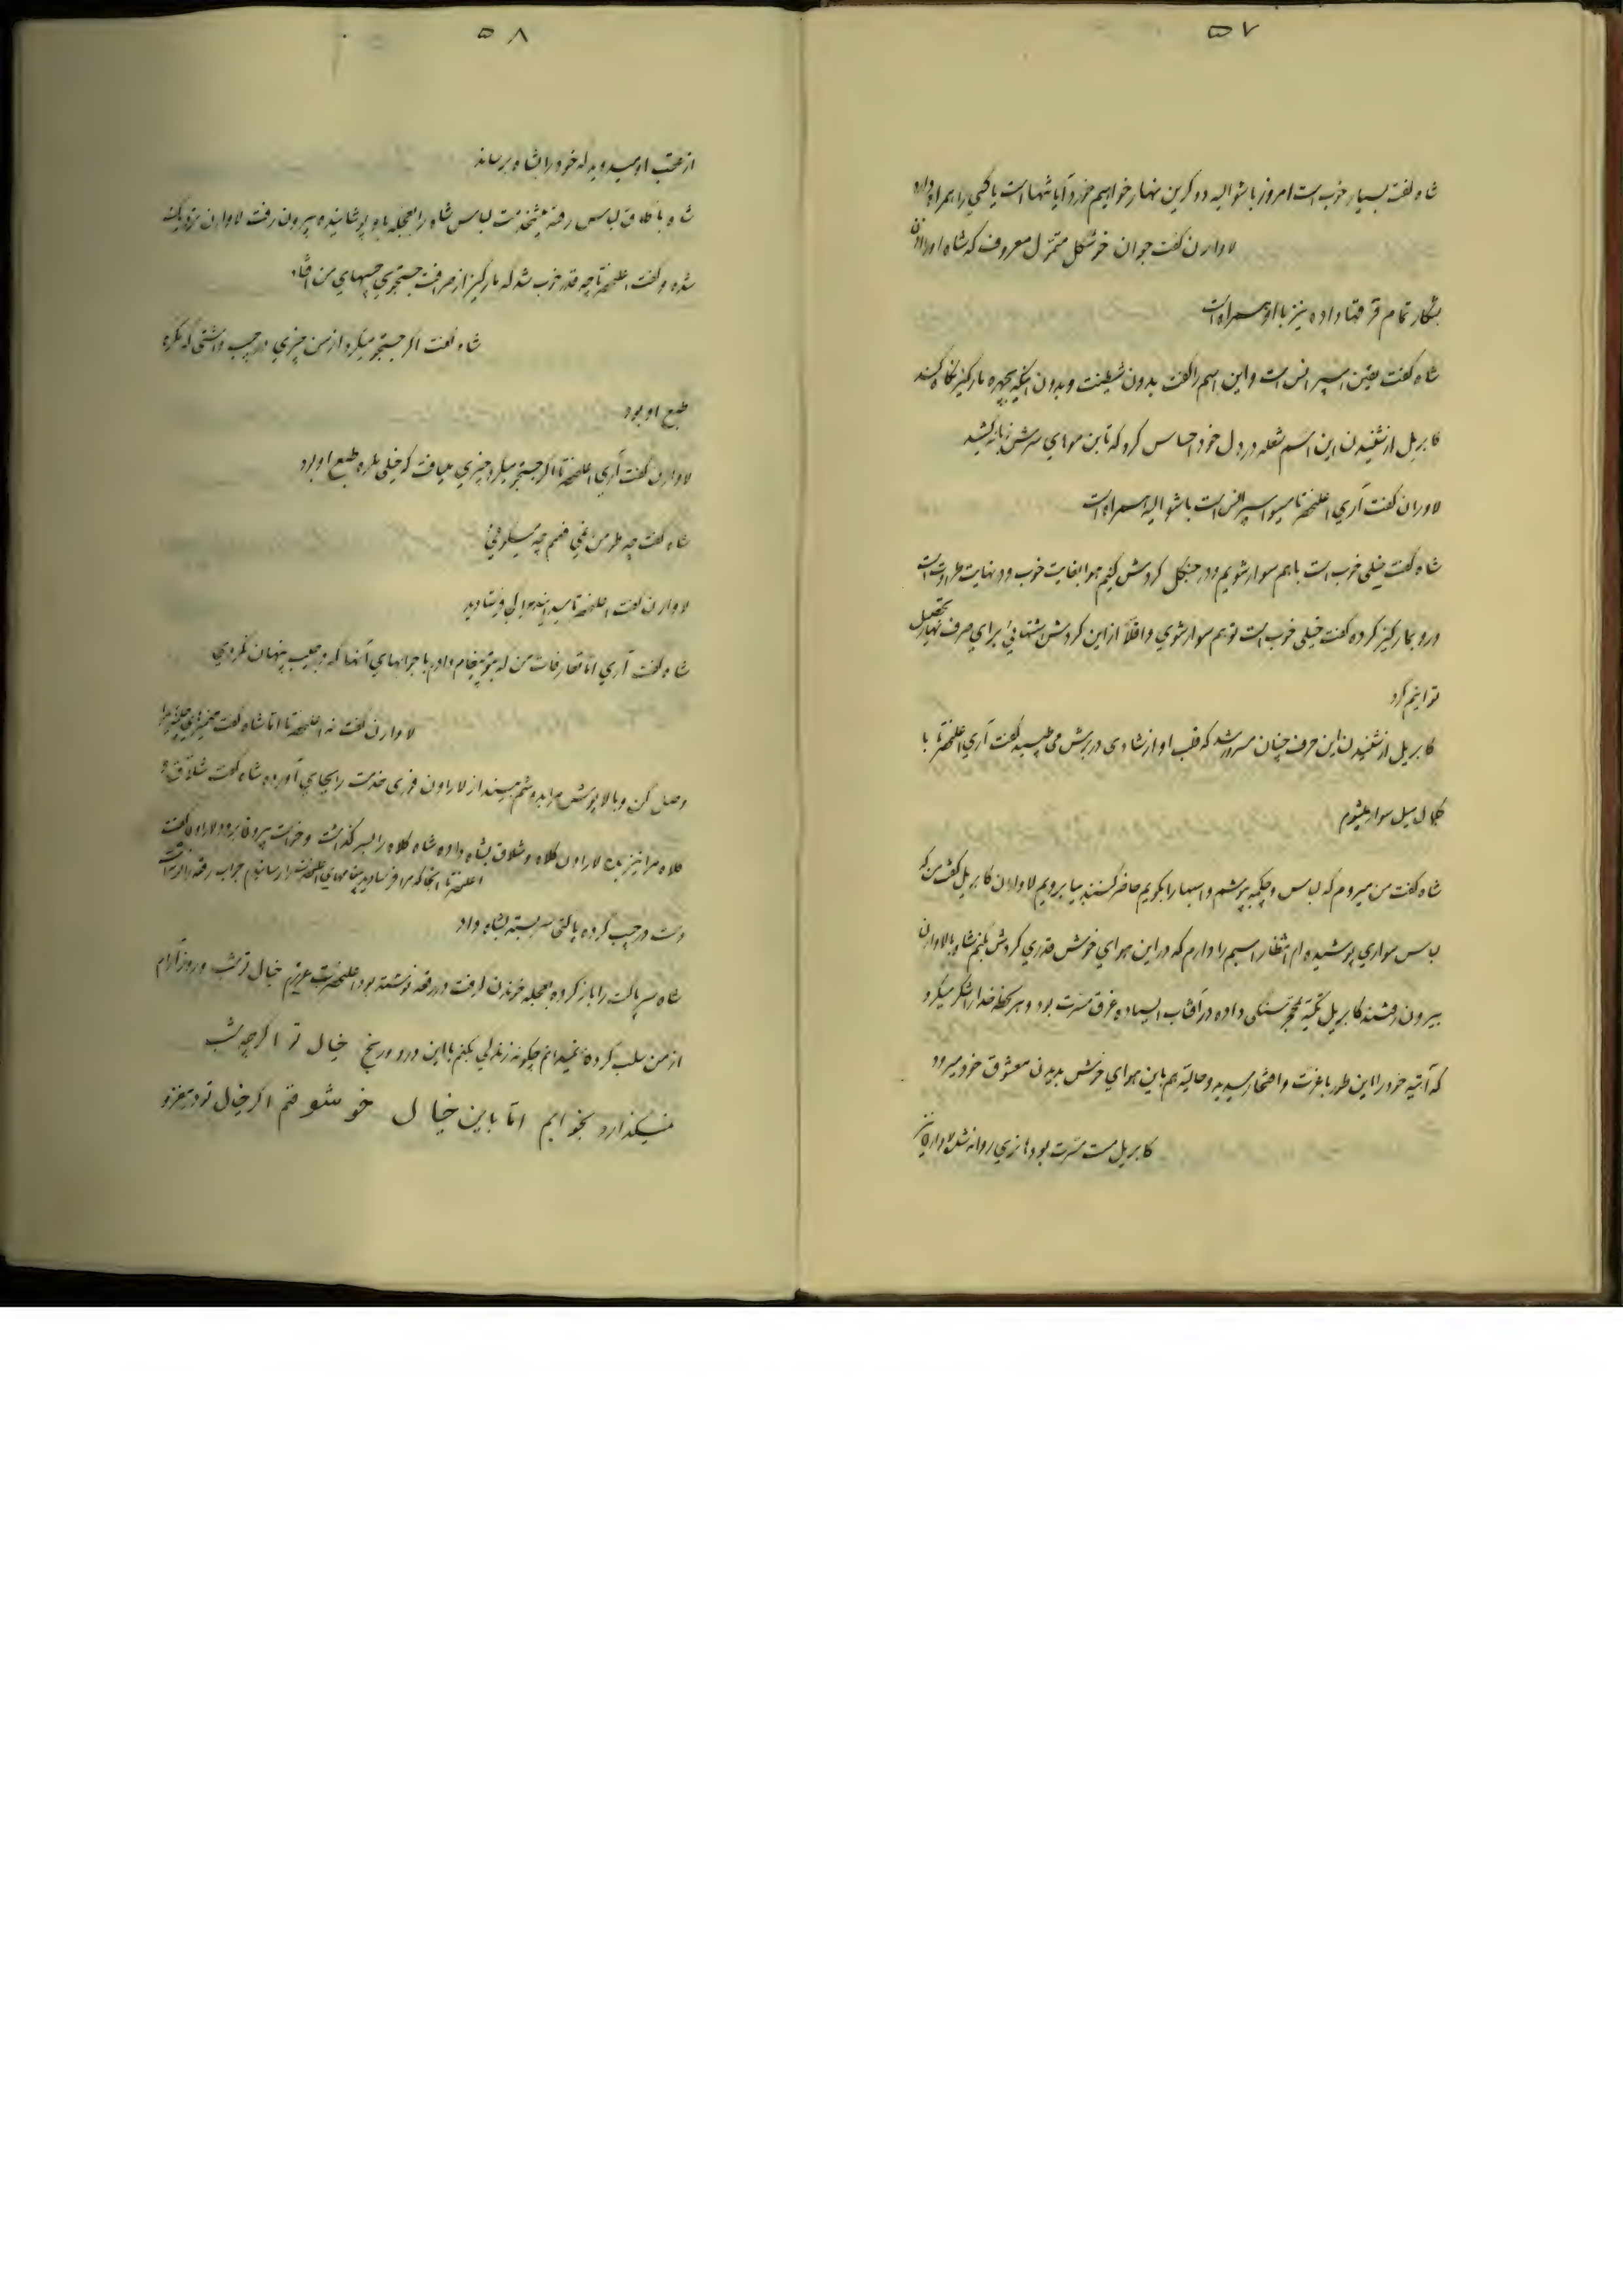 ۵۷
شاه گفت بسیار خوب است امروز با شوالیه دوگرین نهار خواهیم خورد آیا تنها است یا کسی را همراه دارد
لاوارن گفت جوان خوشگل متمول معروف که شاه او را اذن
بشکار تمام قرقها داده نیز با او همراه است
شاه گفت یقین اسپرانس است و این اسم را گفت بدون شیطنت و بدون اینکه بچهره مارکیز نگاه کند
کابریل از شنیدن این اسم شعله در دل خود احساس کرد که تا بن موهای سرش زبانه کشید
لاوران گفت آری اعلیحضرتا مسیو اسپرانس است با شوالیه همراه است
شاه گفت خیلی خوب است باهم سوار شویم و در جنگل گردش کنیم هوا بغایت خوب و در نهایت طراوت است
و رو بمارکیز کرده گفت خیلی خوب است تو هم سوار شوی و اقلاً از این گردش اشتهائی برای صرف نهار تحصیل
توانیم کرد
کابریل از شنیدن این حرف چنان مسرور شد که قلب او از شادی در برش می طپید گفت آری اعلیحضرتا با
کمال میل سوار میشوم
شاه گفت من میروم که لباس و چکمه بپوشم و اسبها را بگویم حاضر کنند بیا برویم لاوارن کابریل گفت من که
لباس سواری پوشیده ام انتظار اسبم را دارم که در این هوای خوش قدری گردش بکنم شاه با لاوارن
بیرون رفتند کابریل تکیه بمحجر سنگی داده در آفتاب ایستاده غرق مسرت بود و هر لحظه خدا را شکر میکرد
که آتیه خود را این طور با عزت و افتخار رسیده و حالیه هم باین هوای خوش بدیدن معشوق خود میرود
کابریل مست مسرت بود هانری روانه شد لاوارن نیز
۵۸
از عقب او میدوید که خود را بشاه برساند
شاه باطاق لباس رفته پیشخدمت لباس شاه را بعجله باو پوشانیده بیرون رفت لاوارن نزدیک
شده و گفت اعلیحضرتا چه قدر خوب شد که مارکیز از صرافت جستجوی جیبهای من افتاد
شاه گفت اگر جستجو میکرد از من چیزی در جیب داشتی که مکره
طبع او بود
لاوارن گفت آری اعلیحضرتا اگر جستجو میکرد چیزی مییافت که خیلی مکره طبع او بود
شاه گفت چه طور من نمی فهمم چه میگوئی
لاوارن گفت اعلیحضرتا میدانید مرا کجا فرستادید
شاه گفت آری اما تعارفات من که بتو پیغام دادم با جوابهای آنها که در جیب پنهان نکردی
لاوارن گفت نه اعلیحضرتا اما شاه گفت مهمیزهای چکمه مرا
وصل کن و بالاپوش مرا بدوشم بینداز لاراون فوری خدمت را بجای آورده شاه گفت شلاق و
کلاه مرا نیز بده لاراون کلاه و شلاق بشاه داده شاه کلاه را بسر گذاشت و خواست بیرون برود لاراون گفت
اعلیحضرتا آنجا که مرا فرستادید پیغامهای اعلیحضرت را رسانیدم جواب رقعه را
دست در جیب کرده پاکتی سر بسته بشاه داد
شاه سر پاکت را باز کرده بعجله خواندن گرفت در رقعه نوشته بود اعلیحضرت عزیزم خیال تو شب و روز آرام
از من سلب کرده نمیدانم چگونه زندگی بکنم با این درد و رنج خیال تو اگرچه شب
نمیگذارد بخوابم اما باین خیال خوشوقتم اگر خیال تو در مغز و